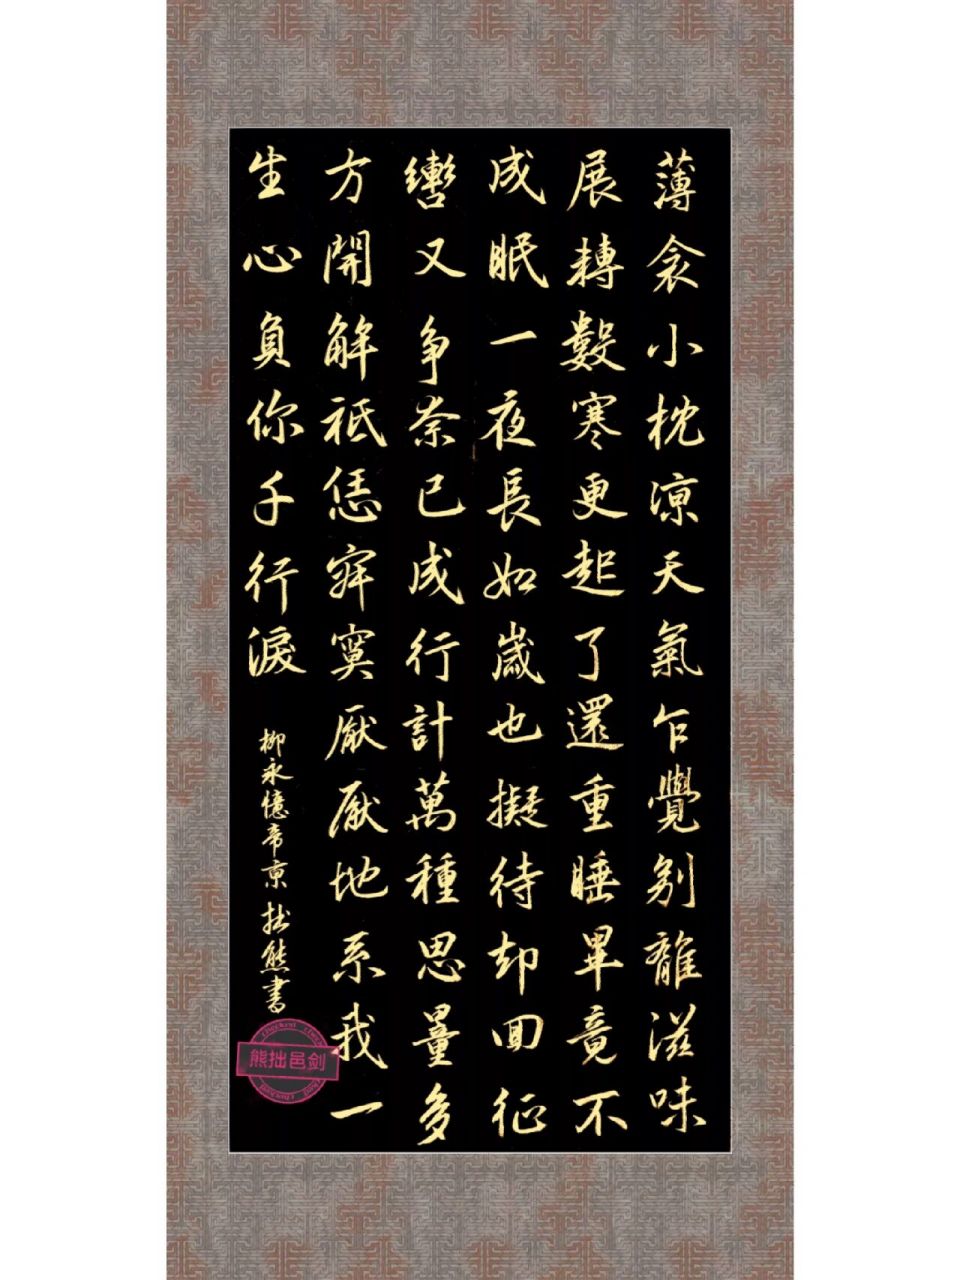 薄衾小枕涼天氣乍覺别離滋味
展轉數寒更起了還重睡畢竟不
成眠一夜長如歲也擬待却回征
轡又争奈已成行計萬種思量多
方開解祗恁寂寞厭厭地系我一
生心負你千行淚
柳永憶帝京拙熊書
熊拙邑剑